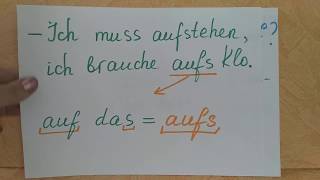 – Ich muss aufstehen,
ich brauche aufs Klo.
auf das = aufs